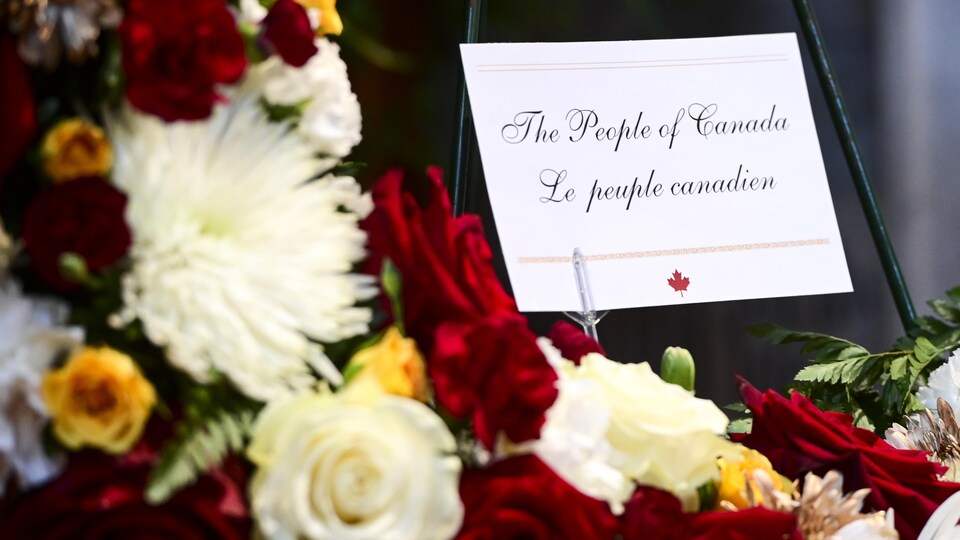 The People of Canada
Le peuple canadien